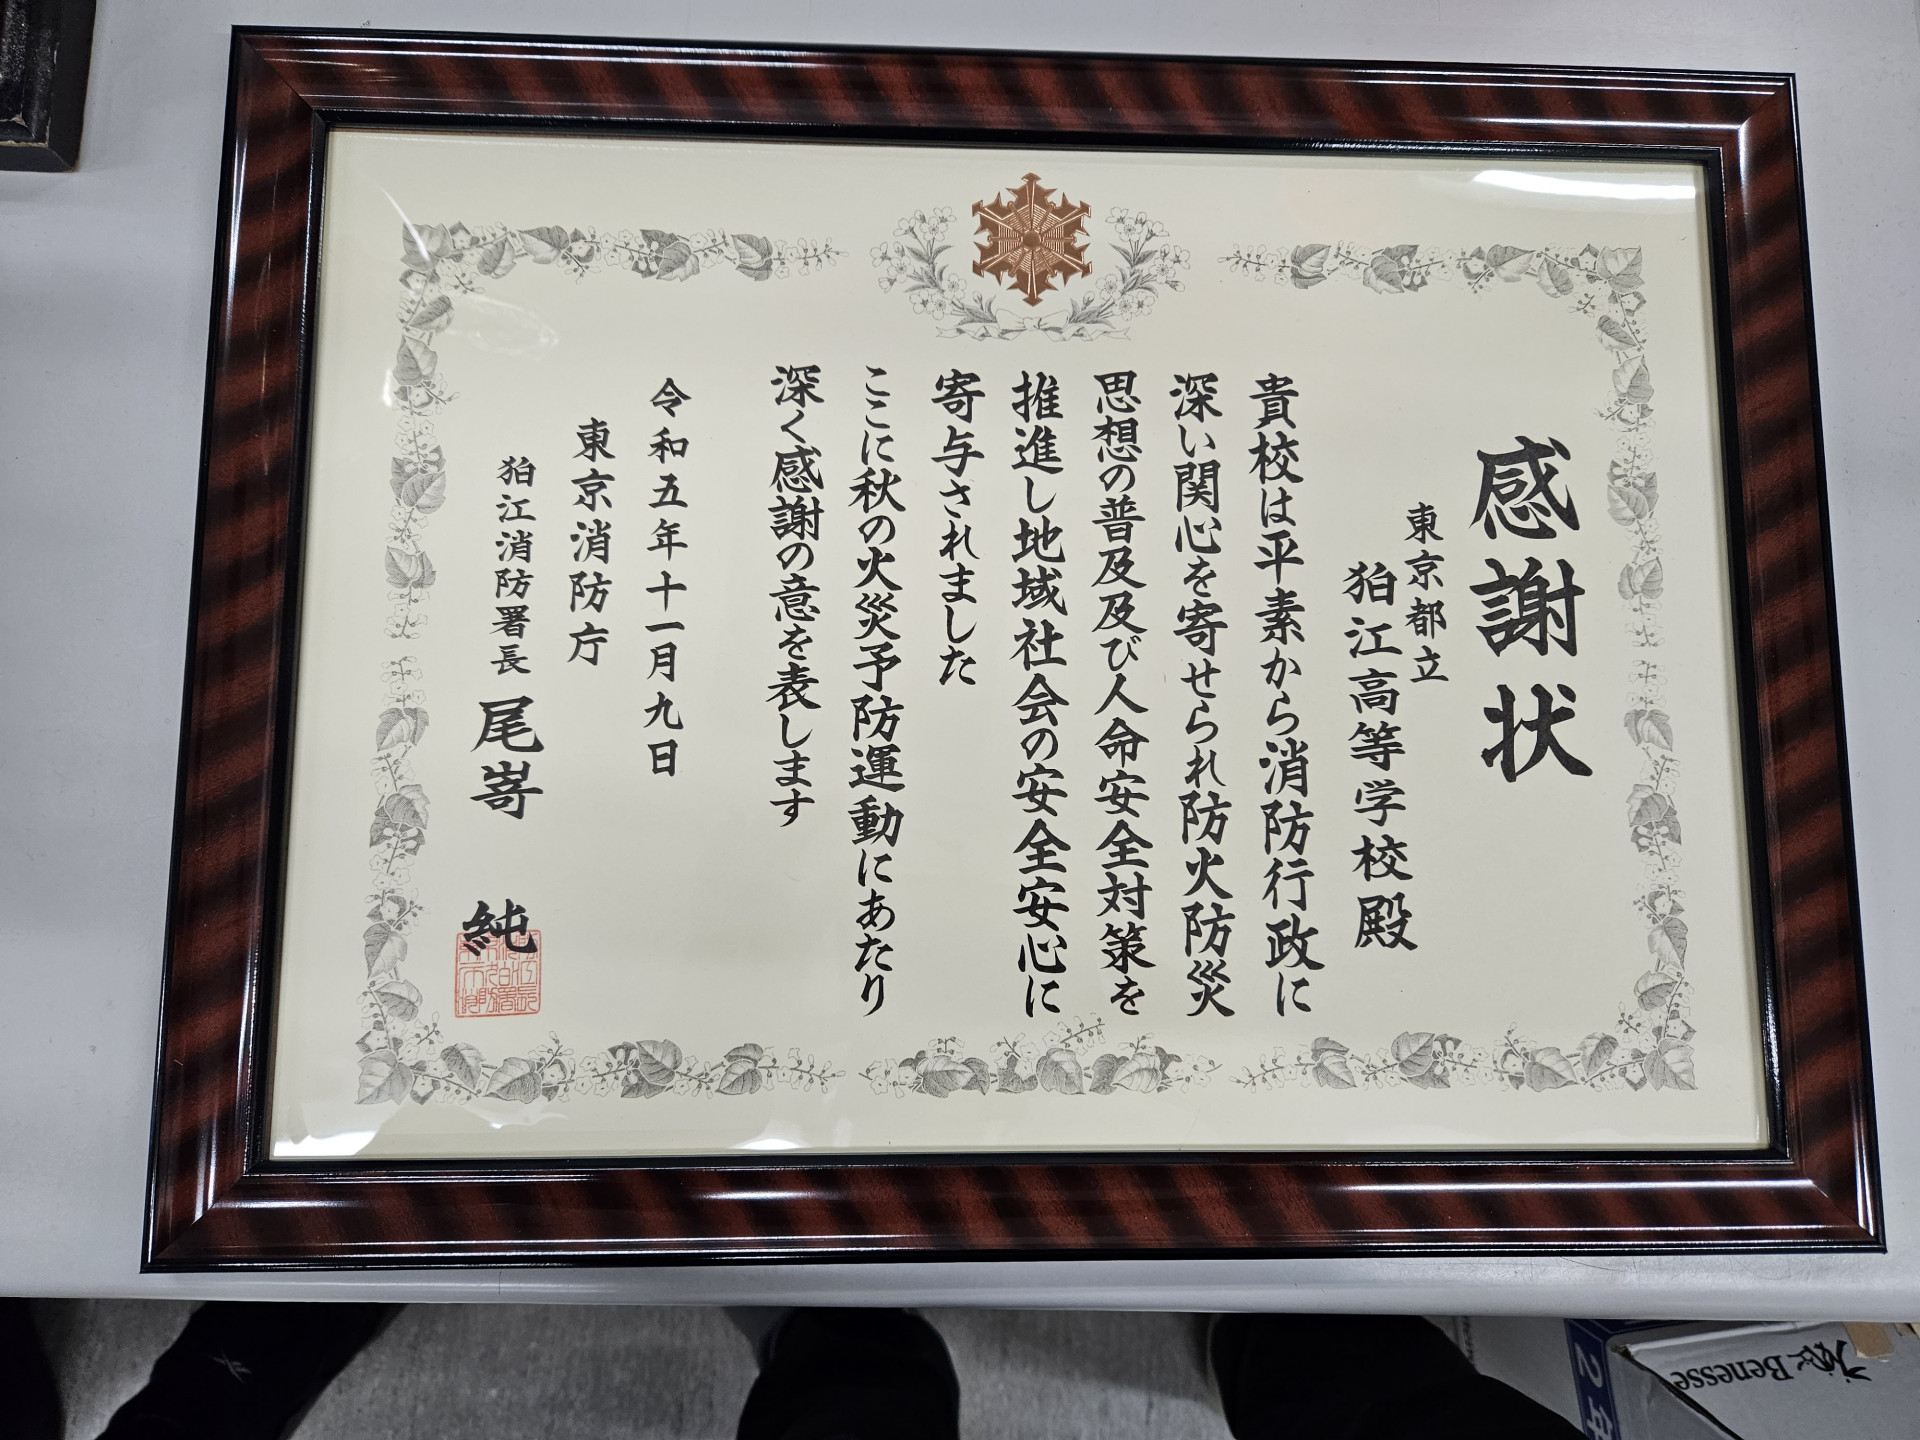 感謝状
東京都立
狛江高等学校殿
貴校は平素から消防行政に
深い関心を寄せられ防火防災
思想の普及及び人命安全対策を
推進し地域社会の安全安心に
寄与されました
ここに秋の火災予防運動にあたり
深く感謝の意を表します
令和五年十一月九日
東京消防庁
狛江消防署長 尾嵜 純
Benesse